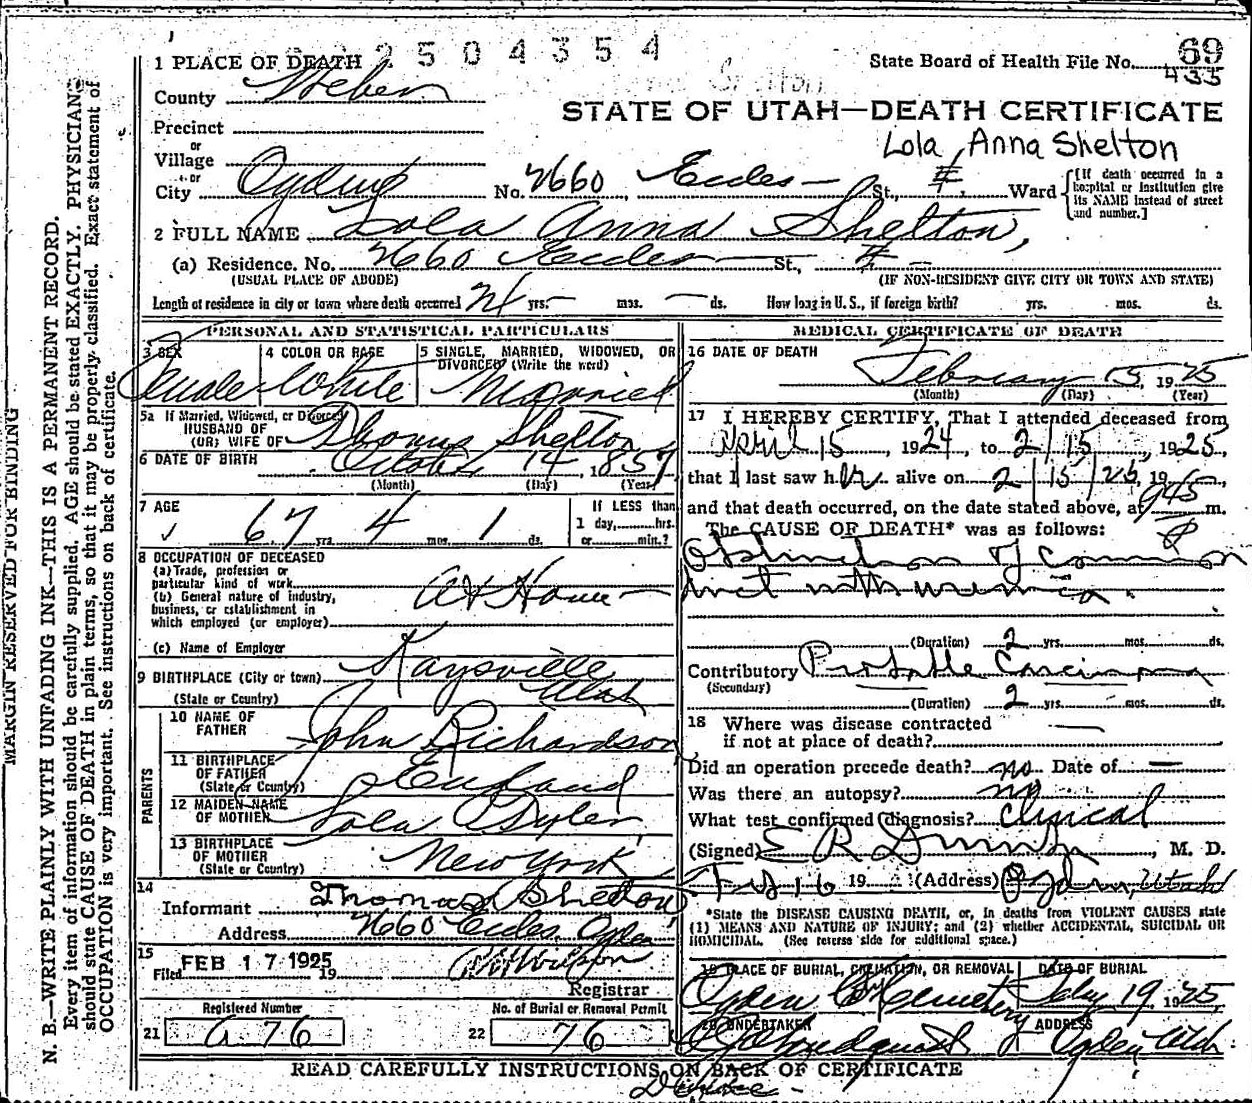 2504354
1 PLACE OF DEATH
State Board of Health File No. 69
435
County Weber
STATE OF UTAH—DEATH CERTIFICATE
Precinct
or
Lola Anna Shelton
Village
or
City Ogden No. 2660 Eccles — St., Ward
[If death occurred in a hospital or institution give its NAME instead of street and number.]
2 FULL NAME Lola Anna Shelton,
(a) Residence. No. 2660 Eccles St.,
(USUAL PLACE OF ABODE) (IF NON-RESIDENT GIVE CITY OR TOWN AND STATE)
Length of residence in city or town where death occurred yrs. — mos. — ds. How long in U. S., if foreign birth? yrs. mos. ds.
PERSONAL AND STATISTICAL PARTICULARS
3 SEX 4 COLOR OR RACE 5 SINGLE, MARRIED, WIDOWED, OR DIVORCED (Write the word)
Female White Married
5a If Married, Widowed, or Divorced
HUSBAND OF
(OR) WIFE OF Thomas Shelton
6 DATE OF BIRTH October 14 1857
(Month) (Day) (Year)
7 AGE If LESS than
67 yrs. 4 mos. 1 ds. 1 day, hrs.
or min.?
8 OCCUPATION OF DECEASED
(a) Trade, profession or
particular kind of work At Home —
(b) General nature of industry,
business, or establishment in
which employed (or employer)
(c) Name of Employer
9 BIRTHPLACE (City or town) Kaysville
(State or Country) Utah
PARENTS
10 NAME OF
FATHER John Richardson
11 BIRTHPLACE
OF FATHER England
(State or Country)
12 MAIDEN NAME
OF MOTHER Lola
13 BIRTHPLACE
OF MOTHER New York
(State or Country)
14
Informant Thomas Shelton
Address 2660 Eccles, Ogden
15
Filed FEB 17 1925 19
Registrar
Registered Number No. of Burial or Removal Permit
21 a 76 22 76
MEDICAL CERTIFICATE OF DEATH
16 DATE OF DEATH
February 15, 1925
(Month) (Day) (Year)
17 I HEREBY CERTIFY, That I attended deceased from
April 15 1924 to 2/15, 1925,
that I last saw her alive on 2/15/25, 19
and that death occurred, on the date stated above, at 945 m.
The CAUSE OF DEATH* was as follows:
Obstruction of Common
duct with uremia.
(Duration) 2 yrs. mos. ds.
Contributory Probable Carcinoma
(Secondary)
(Duration) 2 yrs. mos. ds.
18 Where was disease contracted —
if not at place of death?
Did an operation precede death? no. Date of —
Was there an autopsy? no
What test confirmed diagnosis? Clinical
(Signed) E R , M. D.
Feb 16 19 (Address) Ogden, Utah
*State the DISEASE CAUSING DEATH, or, in deaths from VIOLENT CAUSES state
(1) MEANS AND NATURE OF INJURY; and (2) whether ACCIDENTAL, SUICIDAL OR
HOMICIDAL. (See reverse side for additional space.)
19 PLACE OF BURIAL, CREMATION, OR REMOVAL DATE OF BURIAL
Ogden City Cemetery Feby 19, 1925
20 UNDERTAKER ADDRESS
Ogden Utah
READ CAREFULLY INSTRUCTIONS ON BACK OF CERTIFICATE
MARGIN RESERVED FOR BINDING
N. B.—WRITE PLAINLY WITH UNFADING INK—THIS IS A PERMANENT RECORD.
Every item of information should be carefully supplied. AGE should be stated EXACTLY. PHYSICIANS
should state CAUSE OF DEATH in plain terms, so that it may be properly classified. Exact statement of
OCCUPATION is very important. See instructions on back of certificate.